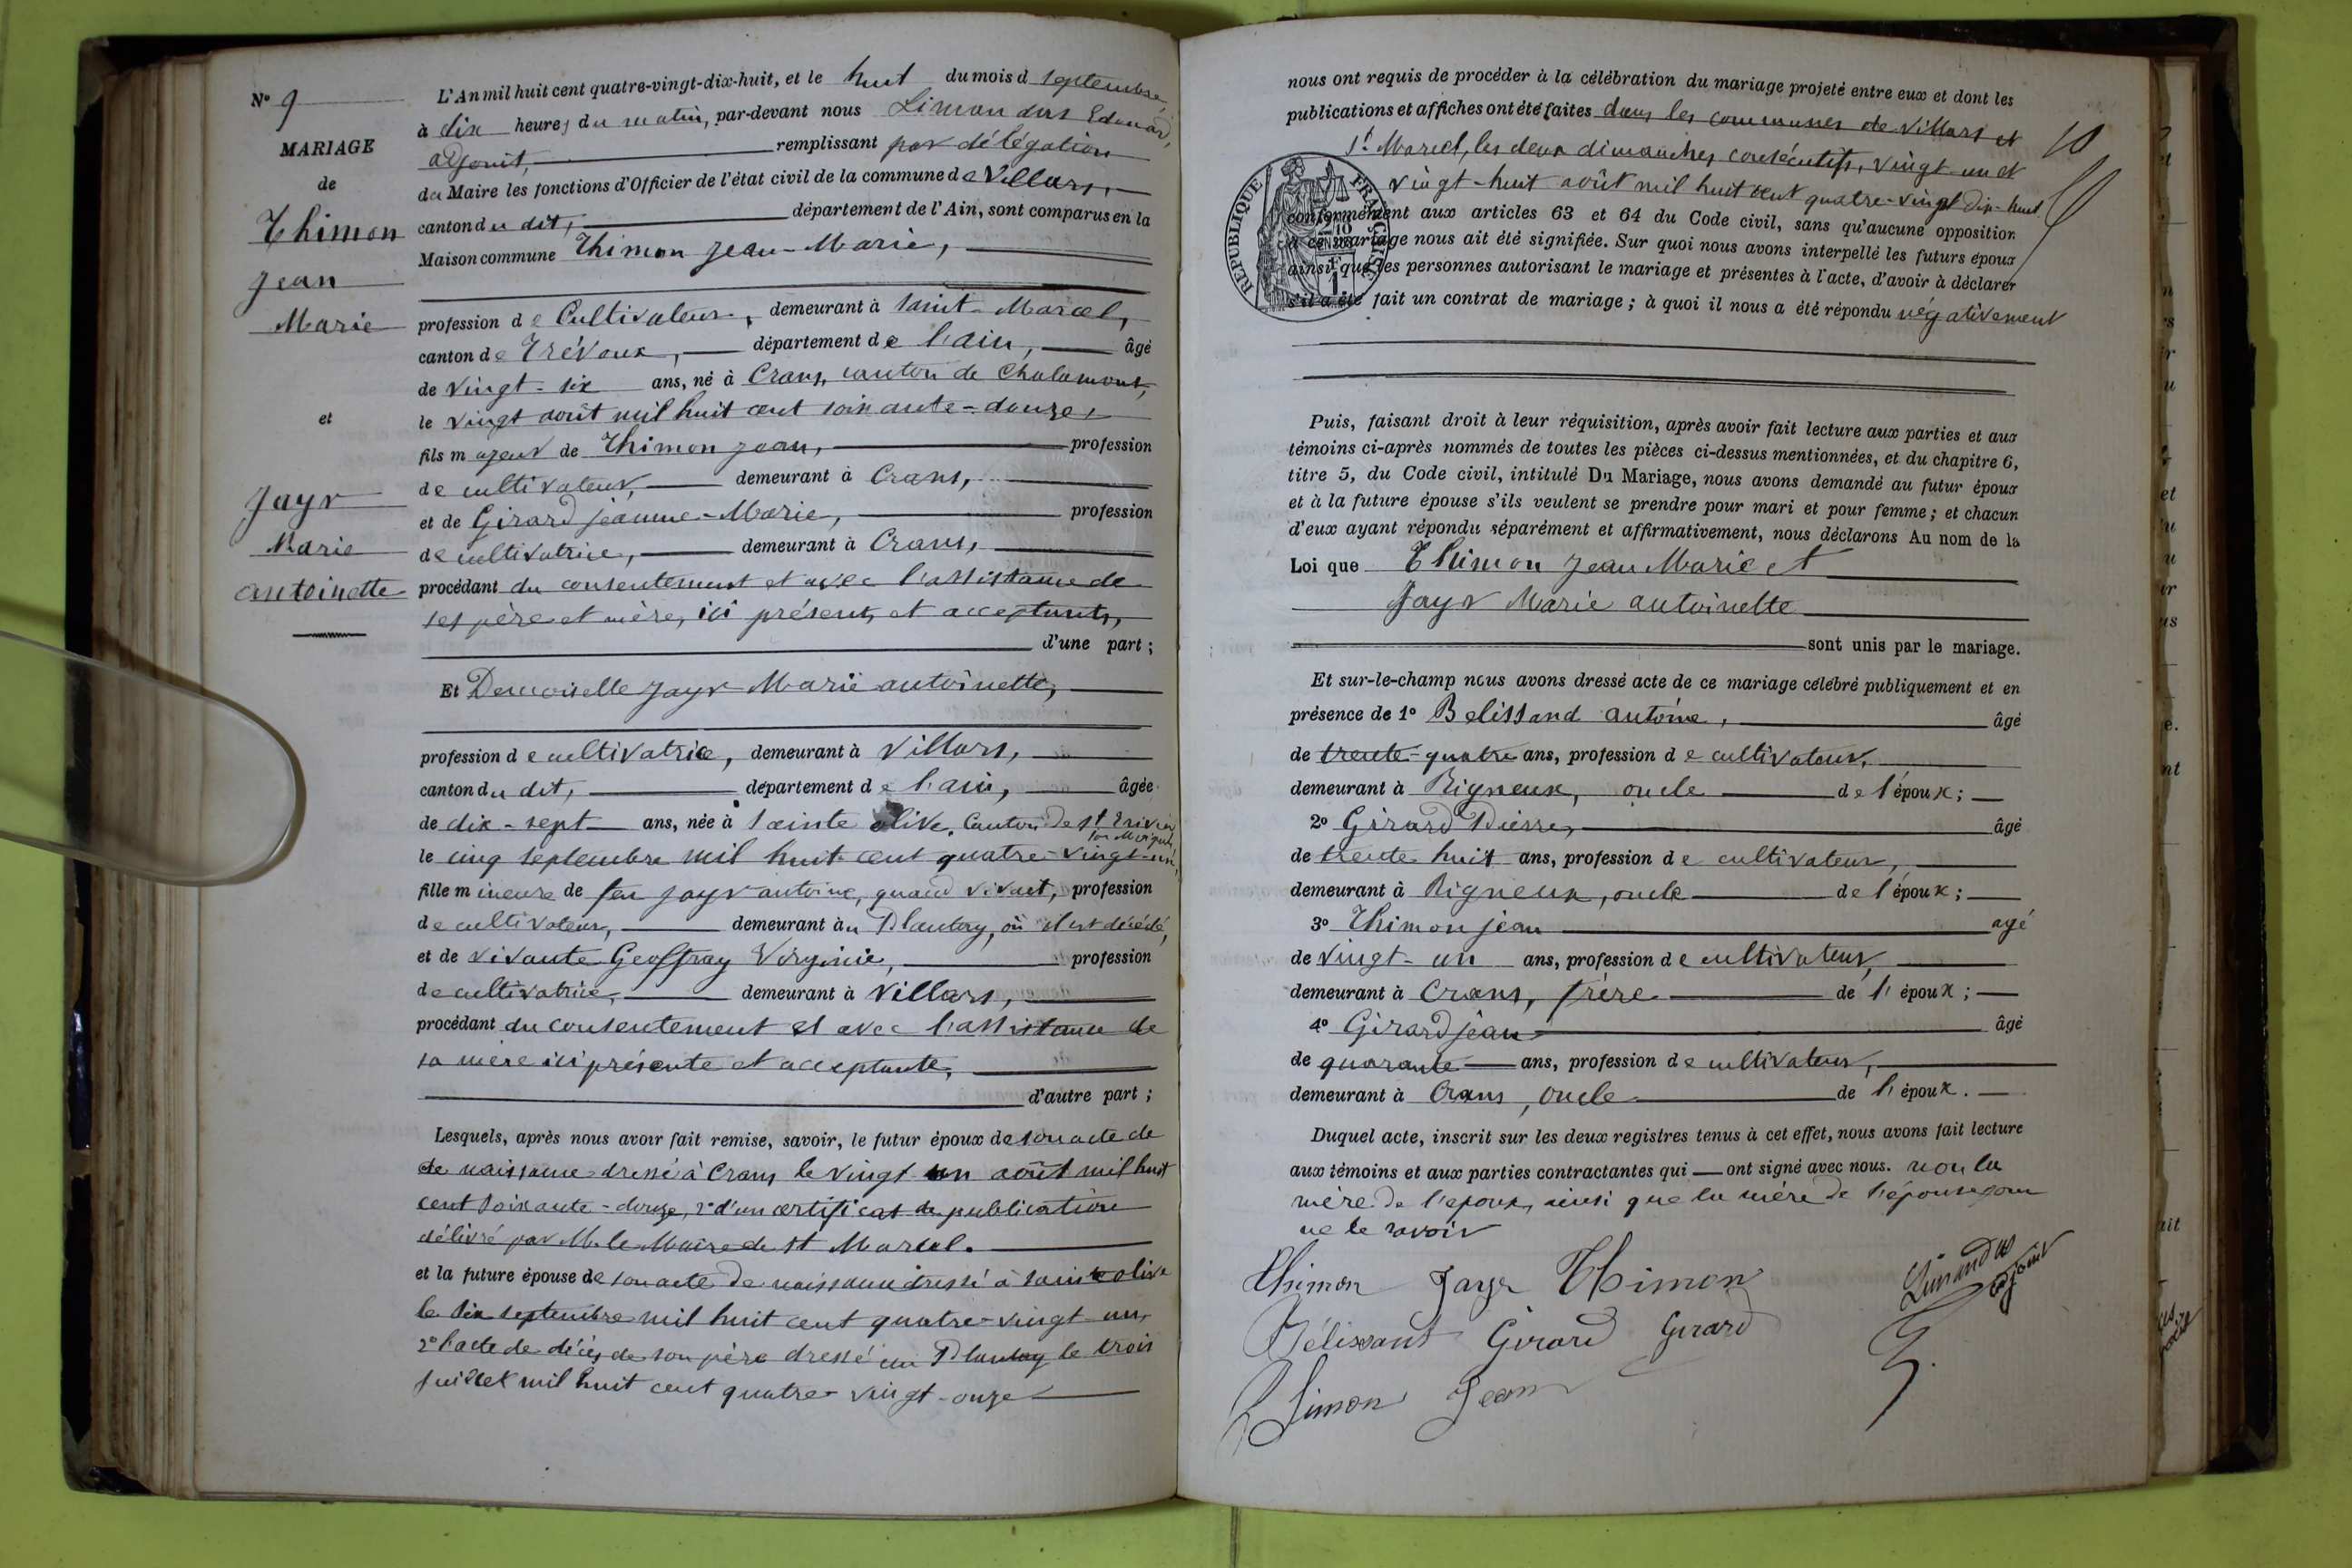 N° 9
MARIAGE
de
Thimon
Jean
Marie
et
Jayr
Marie
antoinette
L'An mil huit cent quatre-vingt-dix-huit, et le huit du mois d septembre,
à dix heures du matin, par-devant nous Limandas Edouard,
adjoint, remplissant par délégation
du Maire les fonctions d'Officier de l'état civil de la commune de Villars,
canton du dit, département de l'Ain, sont comparus en la
Maison commune Thimon Jean-Marie,
profession de Cultivateur, demeurant à Saint-Marcel,
canton de Trévoux, département de l'ain, âgé
de vingt-six ans, né à Crans, canton de Chalamont,
le vingt août mil huit cent soixante-douze,
fils majeur de Thimon Jean, profession
de cultivateur, demeurant à Crans,
et de Girard Jeanne-Marie, profession
de cultivatrice, demeurant à Crans,
procédant du consentement et avec l'assistance de
ses père et mère, ici présents et acceptants,
d'une part ;
Et Demoiselle Jayr Marie antoinette,
profession de cultivatrice, demeurant à Villars,
canton du dit, département de l'ain, âgée
de dix-sept ans, née à Sainte olive, Canton de St Trivier
sur Moignans
le cinq septembre mil huit cent quatre-vingt-un,
fille mineure de feu Jayr antoine, quand vivait, profession
de cultivateur, demeurant au Plantay, où il est décédé,
et de vivante Geoffray Virginie, profession
de cultivatrice, demeurant à Villars,
procédant du consentement et avec l'assistance de
sa mère ici présente et acceptante,
d'autre part ;
Lesquels, après nous avoir fait remise, savoir, le futur époux de son acte de
de naissance dressé à Crans le vingt un août mil huit
cent soixante-douze, 2° d'un certificat de publication
délivré par M. le Maire de St Marcel.
et la future épouse de son acte de naissance dressé à sainte olive
le six septembre mil huit cent quatre-vingt-un,
2° l'acte de décès de son père dressé au Plantay le trois
juillet mil huit cent quatre-vingt-onze
nous ont requis de procéder à la célébration du mariage projeté entre eux et dont les
publications et affiches ont été faites dans les communes de Villars et
St Marcel, les deux dimanches consécutifs, vingt-un et
vingt-huit août mil huit cent quatre-vingt dix-huit
conformément aux articles 63 et 64 du Code civil, sans qu'aucune opposition
à ce mariage nous ait été signifiée. Sur quoi nous avons interpellé les futurs époux
ainsi que les personnes autorisant le mariage et présentes à l'acte, d'avoir à déclarer
s'il a été fait un contrat de mariage ; à quoi il nous a été répondu négativement
RÉPUBLIQUE FRANÇAISE
Puis, faisant droit à leur réquisition, après avoir fait lecture aux parties et aux
témoins ci-après nommés de toutes les pièces ci-dessus mentionnées, et du chapitre 6,
titre 5, du Code civil, intitulé Du Mariage, nous avons demandé au futur époux
et à la future épouse s'ils veulent se prendre pour mari et pour femme ; et chacun
d'eux ayant répondu séparément et affirmativement, nous déclarons Au nom de la
Loi que Thimon Jean Marie et
Jayr Marie antoinette
sont unis par le mariage.
Et sur-le-champ nous avons dressé acte de ce mariage célébré publiquement et en
présence de 1° Belissand antoine, âgé
de trente-quatre ans, profession de cultivateur,
demeurant à Rigneux, oncle de l'époux ;
2° Girard Pierre, âgé
de trente huit ans, profession de cultivateur,
demeurant à Rigneux, oncle de l'époux ;
3° Thimon jean agé
de vingt-un ans, profession de cultivateur,
demeurant à Crans, frère de l'époux ;
4° Girard jean âgé
de quarante ans, profession de cultivateur,
demeurant à Crans, oncle de l'époux.
Duquel acte, inscrit sur les deux registres tenus à cet effet, nous avons fait lecture
aux témoins et aux parties contractantes qui ont signé avec nous. non la
mère de l'époux, ainsi que la mère de l'épouse pour
ne le savoir
Thimon Jayr Thimon Limandas
adjoint
Bélissant Girard Girard
Thimon Jean